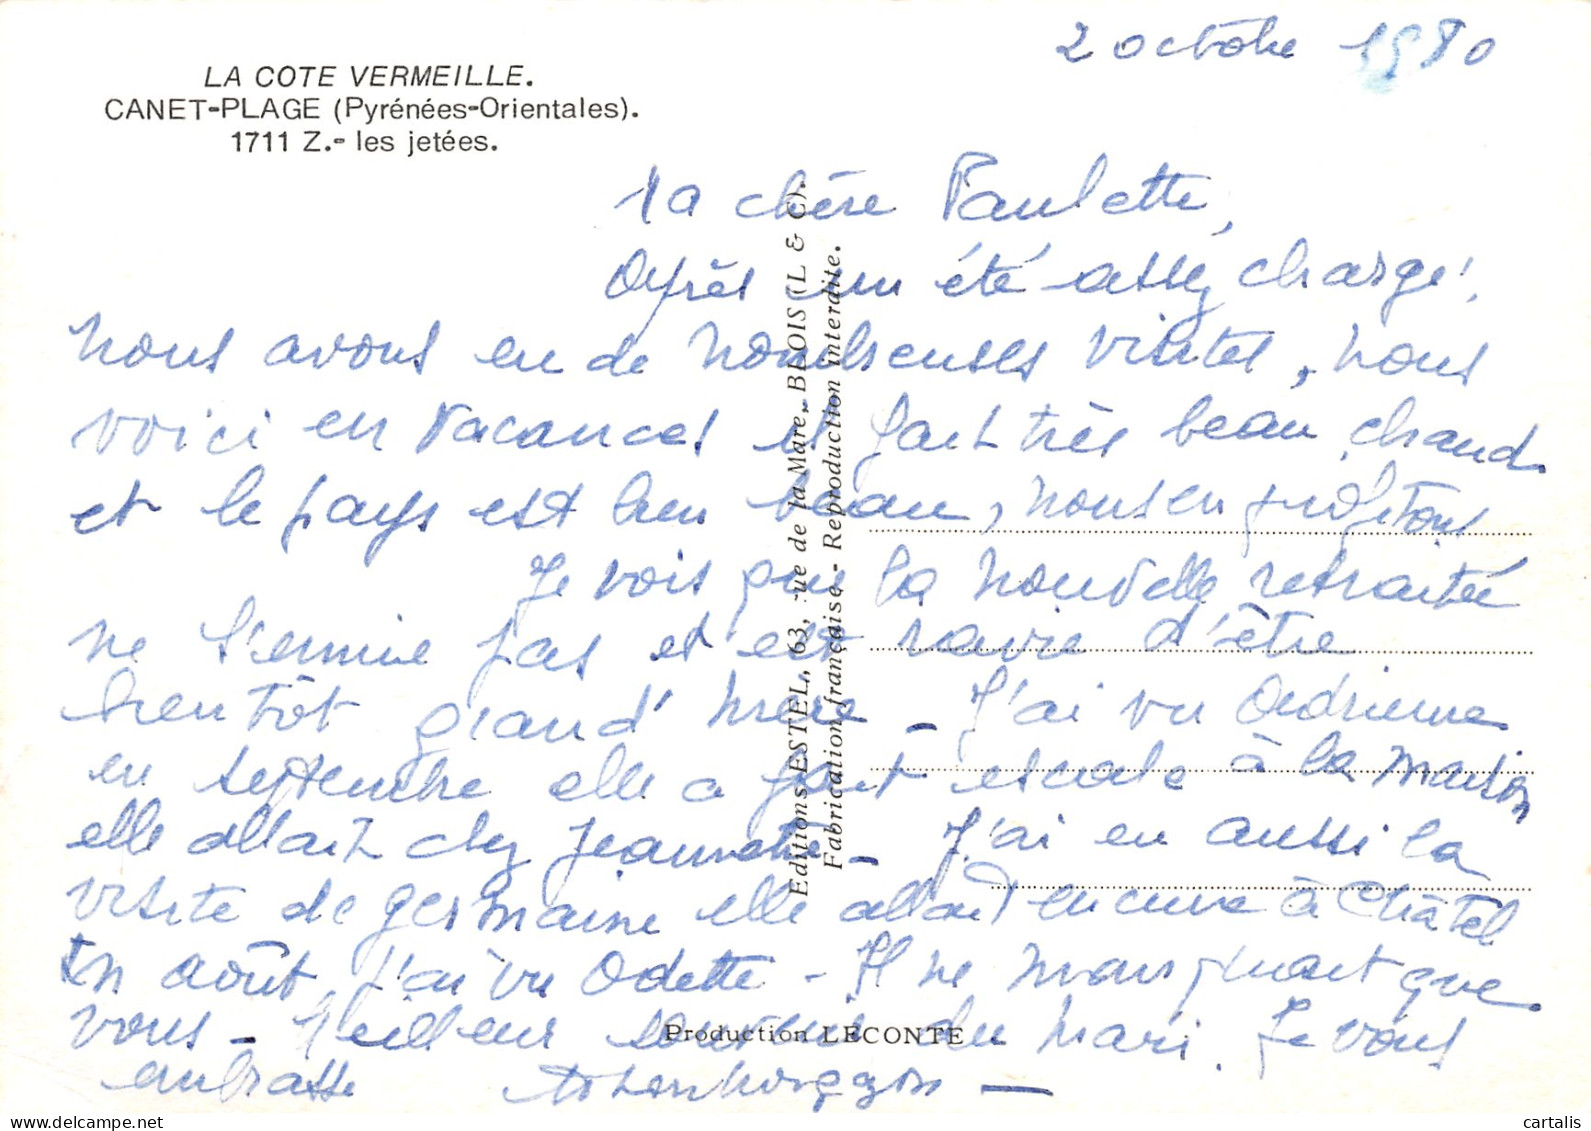 2 octobre 1980
LA COTE VERMEILLE.
CANET-PLAGE (Pyrénées-Orientales).
1711 Z.- les jetées.
Ma chère Paulette,
Après un été assez chargé,
nous avons eu de nombreuses visites, nous
voici en vacances il fait très beau, chaud
et le pays est bien beau, nous en profitons
Je vois que la nouvelle retraitée
ne s'ennuie pas et est ravie d'être
bientôt grand'mère - J'ai vu Andrienne
en septembre elle a fait escale à la maison
elle allait chez Jeannette - J'ai eu aussi la
visite de germaine elle allait en cure à Châtel
En août, j'ai vu Odette - Il ne manquait que
vous - Meilleur souvenir du Mari. Je vous
embrasse
Editions ESTEL, 63, rue de la Mare, BLOIS (L & C).
Fabrication française - Reproduction interdite.
Production LECONTE
www.delcampe.net
cartalis